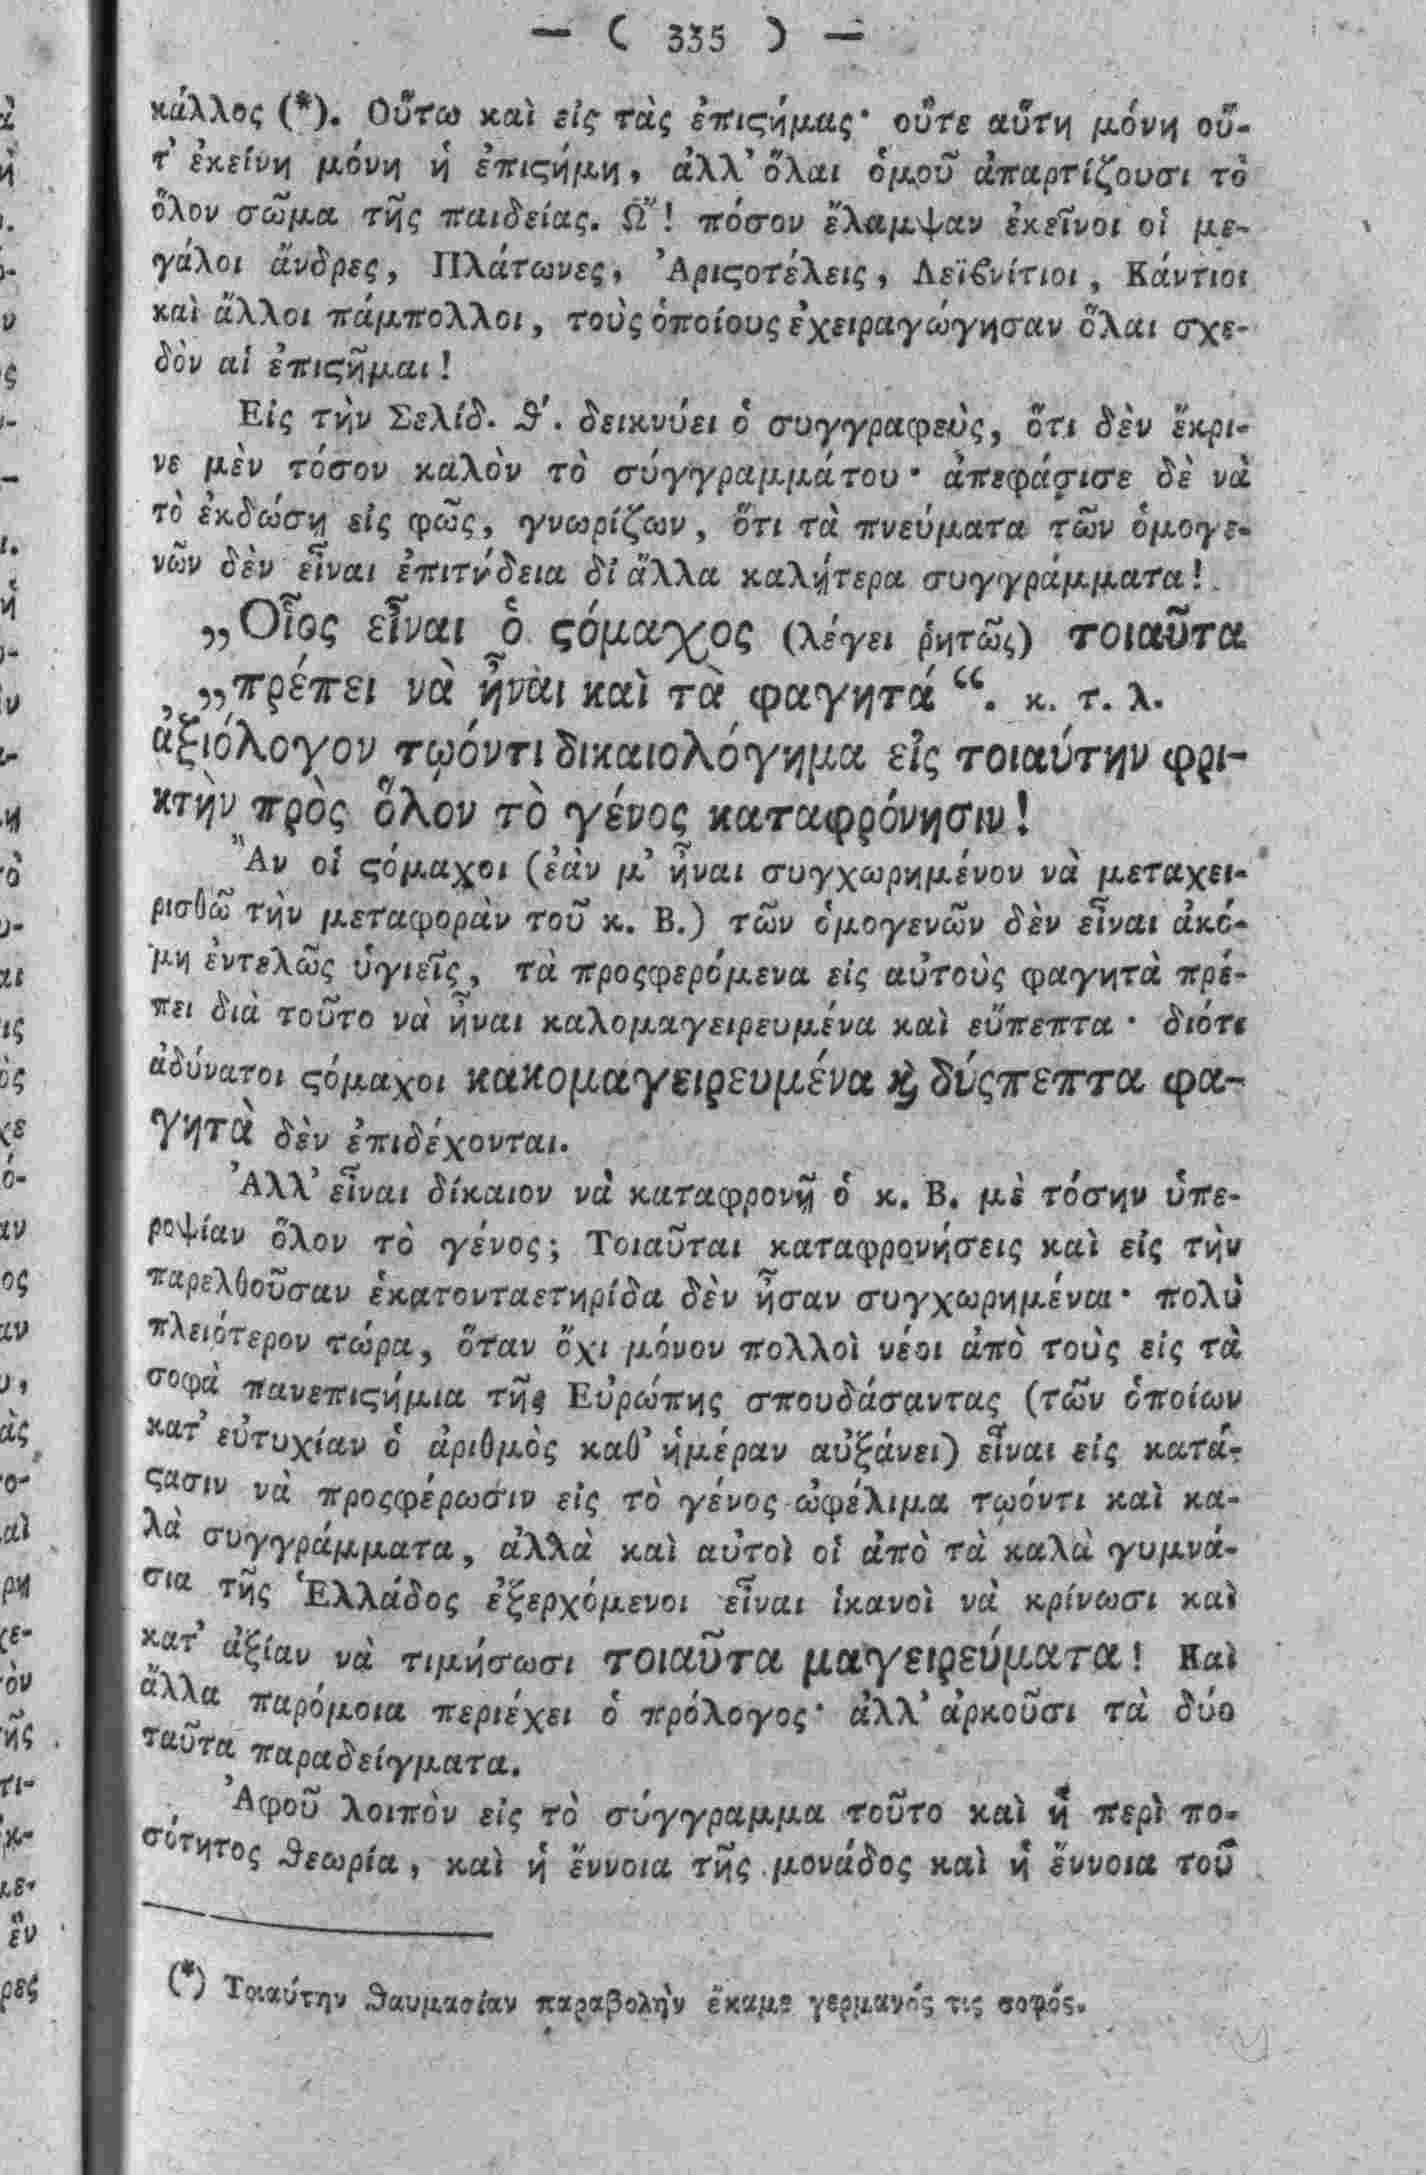 — ( 335 ) —
κάλλος (*). Οὕτω καὶ εἰς τὰς ἐπιϛήμας· οὔτε αὕτη μόνη οὔ-
τ' ἐκείνη μόνη ἡ ἐπιϛήμη, ἀλλ' ὅλαι ὁμοῦ ἀπαρτίζουσι τὸ
ὅλον σῶμα τῆς παιδείας. Ὢ! πόσον ἔλαμψαν ἐκεῖνοι οἱ με-
γάλοι ἄνδρες, Πλάτωνες, Ἀριϛοτέλεις, Λεϊβνίτιοι, Κάντιοι
καὶ ἄλλοι πάμπολλοι, τοὺς ὁποίους ἐχειραγώγησαν ὅλαι σχε-
δὸν αἱ ἐπιϛῆμαι!
Εἰς τὴν Σελίδ. θ'. δεικνύει ὁ συγγραφεὺς, ὅτι δὲν ἔκρι-
νε μὲν τόσον καλὸν τὸ σύγγραμμάτου· ἀπεφάσισε δὲ νὰ
τὸ ἐκδώσῃ εἰς φῶς, γνωρίζων, ὅτι τὰ πνεύματα τῶν ὁμογε-
νῶν δὲν εἶναι ἐπιτήδεια δι ἄλλα καλήτερα συγγράμματα!
„Οἷος εἶναι ὁ ϛόμαχος (λέγει ῥητῶς) τοιαῦτα
„πρέπει νὰ ἦναι καὶ τὰ φαγητά“. κ. τ. λ.
ἀξιόλογον τῳόντι δικαιολόγημα εἰς τοιαύτην φρι-
κτὴν πρὸς ὅλον τὸ γένος καταφρόνησιν!
Ἂν οἱ ϛόμαχοι (ἐὰν μ' ἦναι συγχωρημένον νὰ μεταχει-
ρισθῶ τὴν μεταφορὰν τοῦ κ. Β.) τῶν ὁμογενῶν δὲν εἶναι ἀκό-
μη ἐντελῶς ὑγιεῖς, τὰ προςφερόμενα εἰς αὐτοὺς φαγητὰ πρέ-
πει διὰ τοῦτο νὰ ἦναι καλομαγειρευμένα καὶ εὔπεπτα· διότι
ἀδύνατοι ϛόμαχοι κακομαγειρευμένα ϗ δύςπεπτα φα-
γητὰ δὲν ἐπιδέχονται.
Ἀλλ' εἶναι δίκαιον νὰ καταφρονῇ ὁ κ. Β. μὲ τόσην ὑπε-
ροψίαν ὅλον τὸ γένος; Τοιαῦται καταφρονήσεις καὶ εἰς τὴν
παρελθοῦσαν ἑκατονταετηρίδα δὲν ἦσαν συγχωρημέναι· πολὺ
πλειότερον τώρα, ὅταν ὄχι μόνον πολλοὶ νέοι ἀπὸ τοὺς εἰς τὰ
σοφὰ πανεπιϛήμια τῆς Εὐρώπης σπουδάσαντας (τῶν ὁποίων
κατ' εὐτυχίαν ὁ ἀριθμὸς καθ' ἡμέραν αὐξάνει) εἶναι εἰς κατά-
ϛασιν νὰ προςφέρωσιν εἰς τὸ γένος ὠφέλιμα τῳόντι καὶ κα-
λὰ συγγράμματα, ἀλλὰ καὶ αὐτοὶ οἱ ἀπὸ τὰ καλὰ γυμνά-
σια τῆς Ἑλλάδος ἐξερχόμενοι εἶναι ἱκανοὶ νὰ κρίνωσι καὶ
κατ' ἀξίαν νὰ τιμήσωσι τοιαῦτα μαγειρεύματα! Καὶ
ἄλλα παρόμοια περιέχει ὁ πρόλογος· ἀλλ' ἀρκοῦσι τὰ δύο
ταῦτα παραδείγματα.
Ἀφοῦ λοιπὸν εἰς τὸ σύγγραμμα τοῦτο καὶ ἡ περὶ πο-
σότητος θεωρία, καὶ ἡ ἔννοια τῆς μονάδος καὶ ἡ ἔννοια τοῦ
(*) Τοιαύτην θαυμασίαν παραβολὴν ἔκαμε γερμανός τις σοφός.